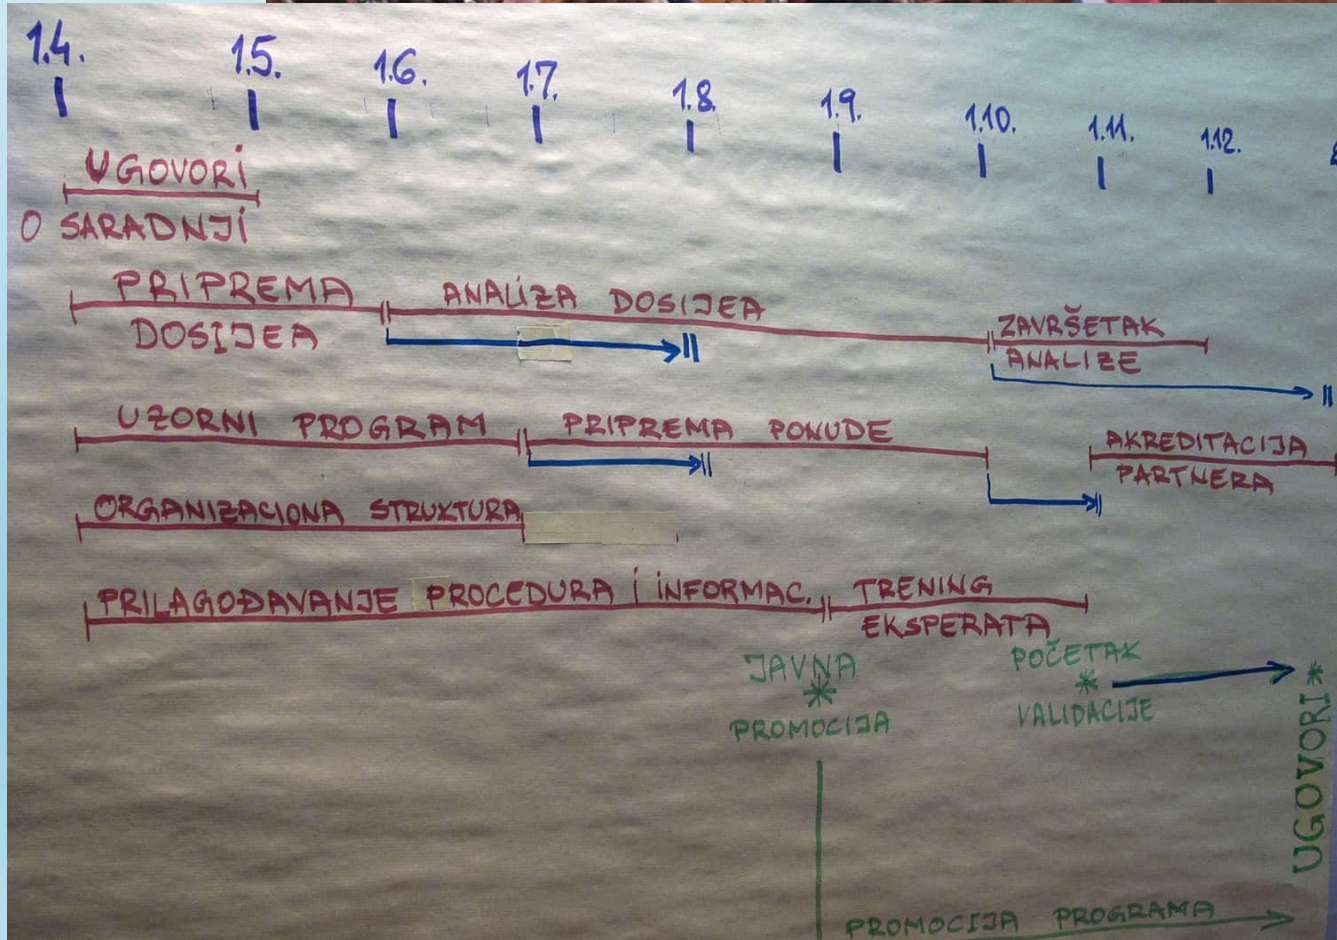 1.4.
1.5.
1.6.
1.7.
1.8.
1.9.
1.10.
1.11.
1.12.
UGOVORI
O SARADNJI
PRIPREMA
DOSIJEA
ANALIZA DOSIJEA
ZAVRŠETAK
ANALIZE
UZORNI PROGRAM
PRIPREMA PONUDE
AKREDITACIJA
PARTNERA
ORGANIZACIONA STRUKTURA
PRILAGOĐAVANJE PROCEDURA I INFORMAC.
TRENING
EKSPERATA
JAVNA
PROMOCIJA
POČETAK
VALIDACIJE
UGOVORI
PROMOCIJA PROGRAMA